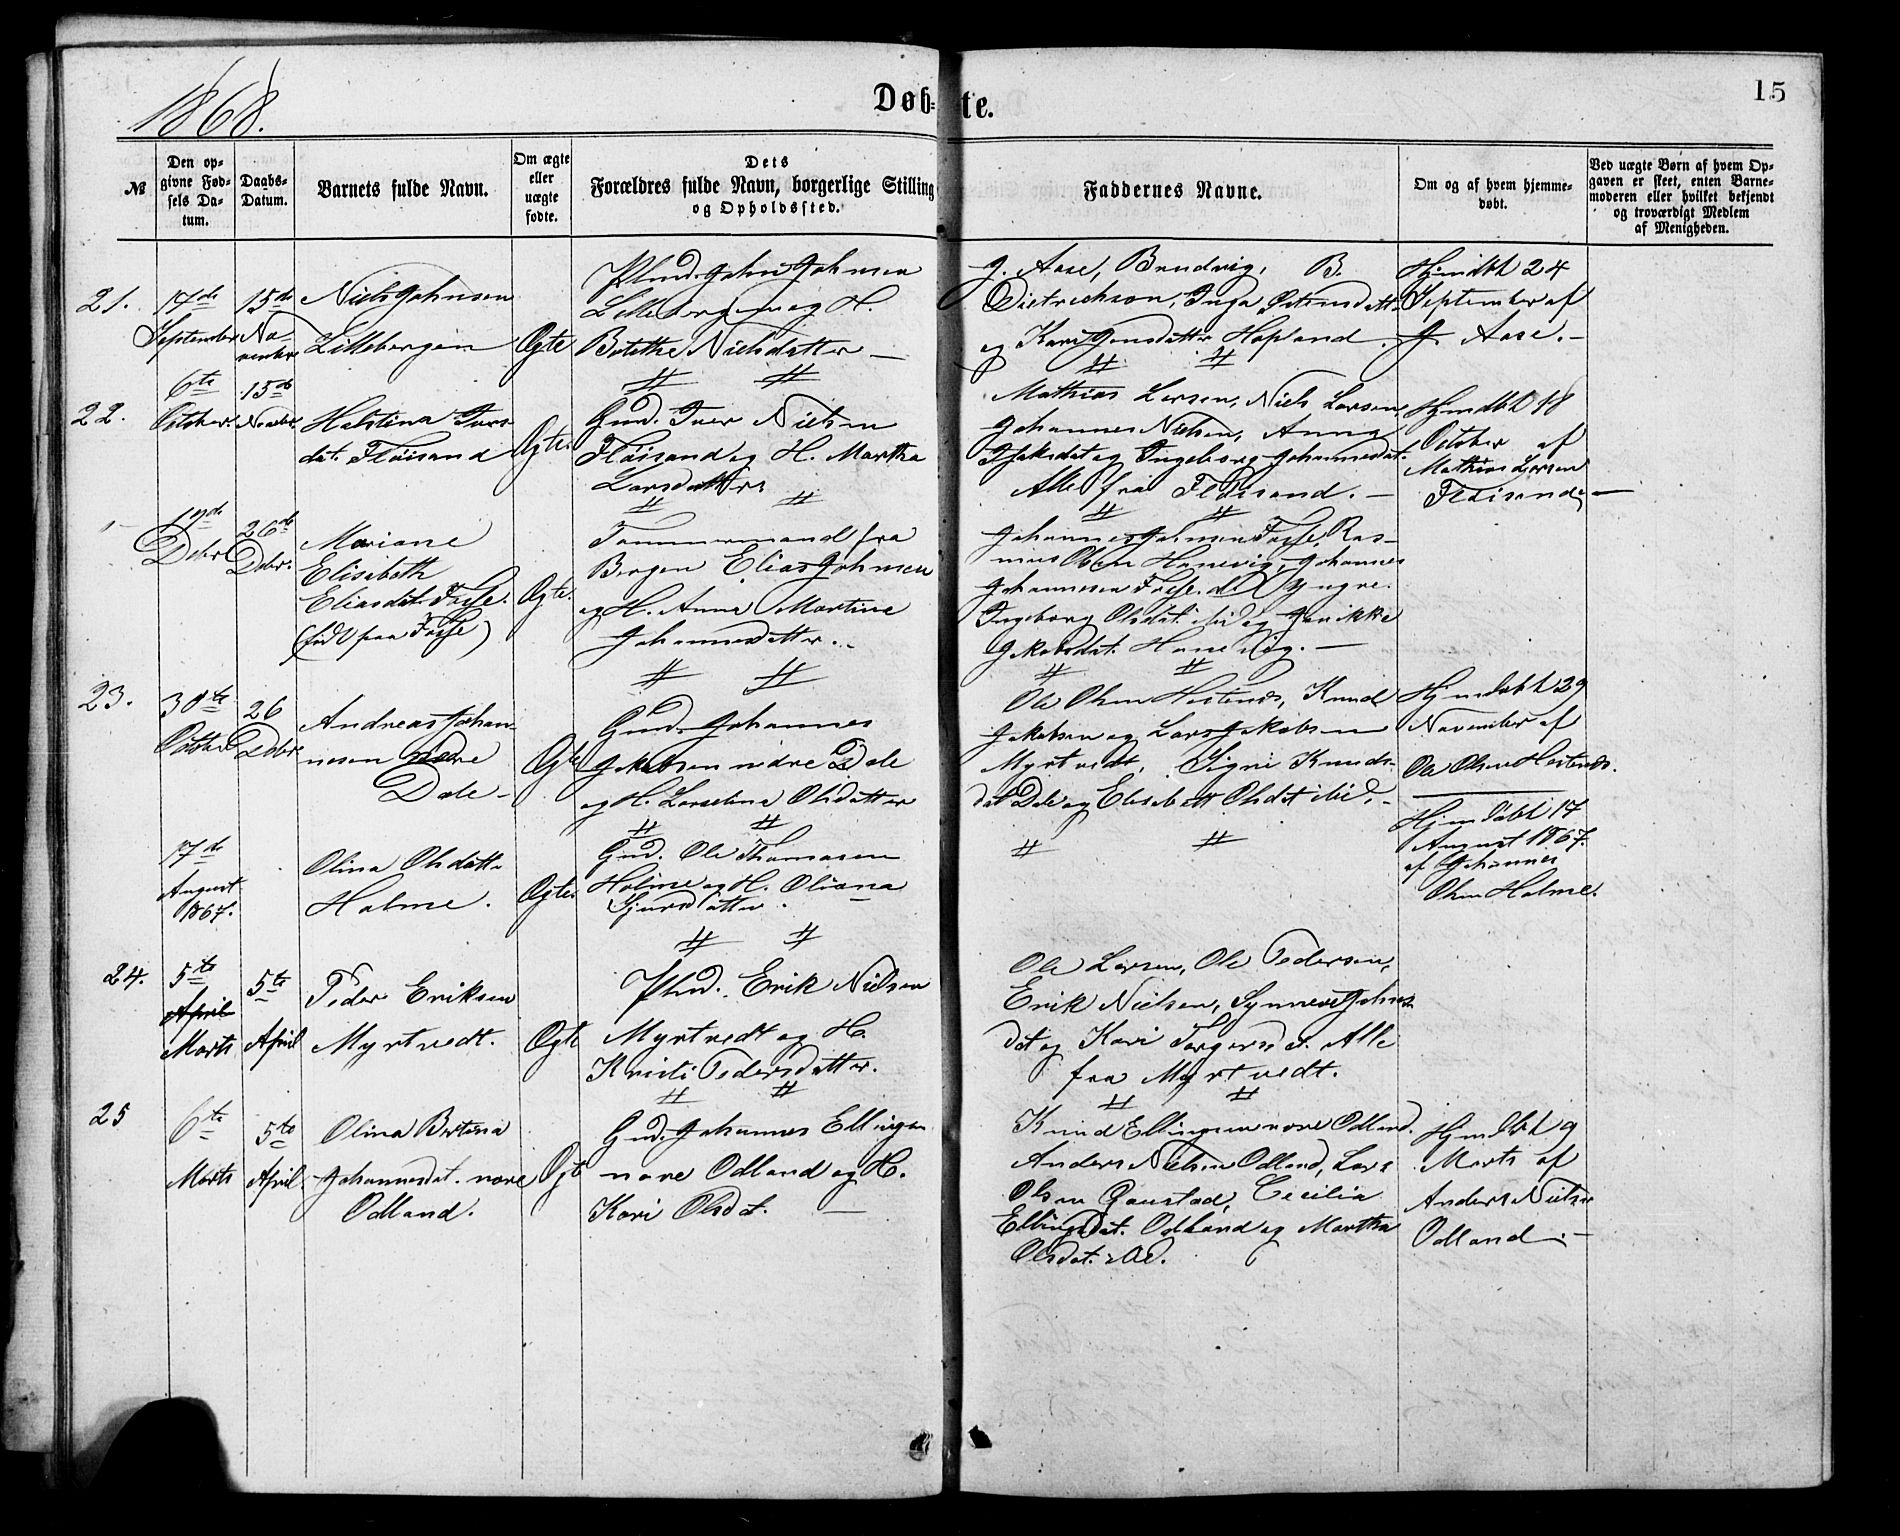 1868.
Døb-te.
15
№
Den op-
givne Fød-
sels Da-
tum.
Daabs-
Datum.
Barnets fulde Navn.
Om ægte
eller
uægte
fødte.
Dets
Forældres fulde Navn, borgerlige Stilling
og Opholdssted.
Faddernes Navne.
Om og af hvem hjemme-
døbt.
Ved uægte Børn af hvem Op-
gaven er skeet, enten Barne-
moderen eller hvilket bekjendt
og troværdigt Medlem
af Menigheden.
21.
17de
September
15de
No-
vember
Niels Johnsen
Lillebergen
Ægte
Plmd. John Johnsen
Lillebergen og H.
Bolethe Nielsdatter —
J. Aase, Brudvig, B.
Dietrichson, Inga
og Kari Jensdatter Hopland.
Hjmdbt 24
September af
J. Aase. —
22.
6te
October
15de
Novbr.
Halstina Ivers
dat. Fløisand
Ægte.
Gmd. Iver Nielsen
Fløisand og H. Martha
Larsdatter
Mathias Larsen, Niels Larsen,
Johannes Nielsen, Anna
og Ingeborg Johannesdat.
Alle fra Fløisand. —
Hjmdbt 18
October af
Mathias Larsen
Fløisand. —
Decbr
26de
Decbr.
Mariane
Elisabeth
Eliasdat. Fosse.
(født paa Fosse)
Ægte.
Tømmermand fra
Bergen Elias Johnsen
og H. Anna Martine
Johannesdatter. —
Johannes Johnsen Fosse, Ras-
mus Olsen Hanevig, Johannes
Johannesen Fosse d. Yngre.
Ingeborg Olsdat. ibid og
Jakobsdat. Hanevig. —
23.
30te
October
26
Decbr.
Andreas Johan-
nesen nedre
Dale —
Ægte
Gmd. Johannes
Jakobsen nedre Dale
og H. Larselina Olsdatter
Ole Olsen Hestenes, Knud
Jakobsen og Lars Jakobsen
Myrtvedt, Sigri Knuds-
dat Dale og Elisabeth Olsdat ibid. —
Hjemdøbt 29
November af
Ole Olsen Hestenes.
17de
August
1867.
Olina Olsdatt.
Holme.
Ægte.
Gmd. Ole Thomasen
Holme og H. Oliana
Sjursdatter.
Hjemdøbt 17
August 1867.
af Johannes
Olsen Holme.
24.
5te
April
Marts
5te
April
Peder Eriksen
Myrtvedt.
Ægte
Plmd. Erik Nielsen
Myrtvedt og H.
Kristi Pedersdatter.
Ole Larsen, Ole Pedersen,
Erik Nielsen, Synneve Johns
dat og Kari Torgersd. Alle
fra Myrtvedt.
25
6te
Marts
5te
April.
Olina Bertina
Johannesdat. nore
Odland.
Ægte
Gmd. Johannes Ellingsen
nore Odland og H.
Kari Olsdat. —
Knud Ellingsen nore Odland.
Anders Nielsen Odland, Lars
Olsen Gaustad, Cecilia
Ellingsdat. Odland og Martha
Olsdat. ibd.
Hjmdbt 9
Marts af
Anders Nielsen
Odland. —